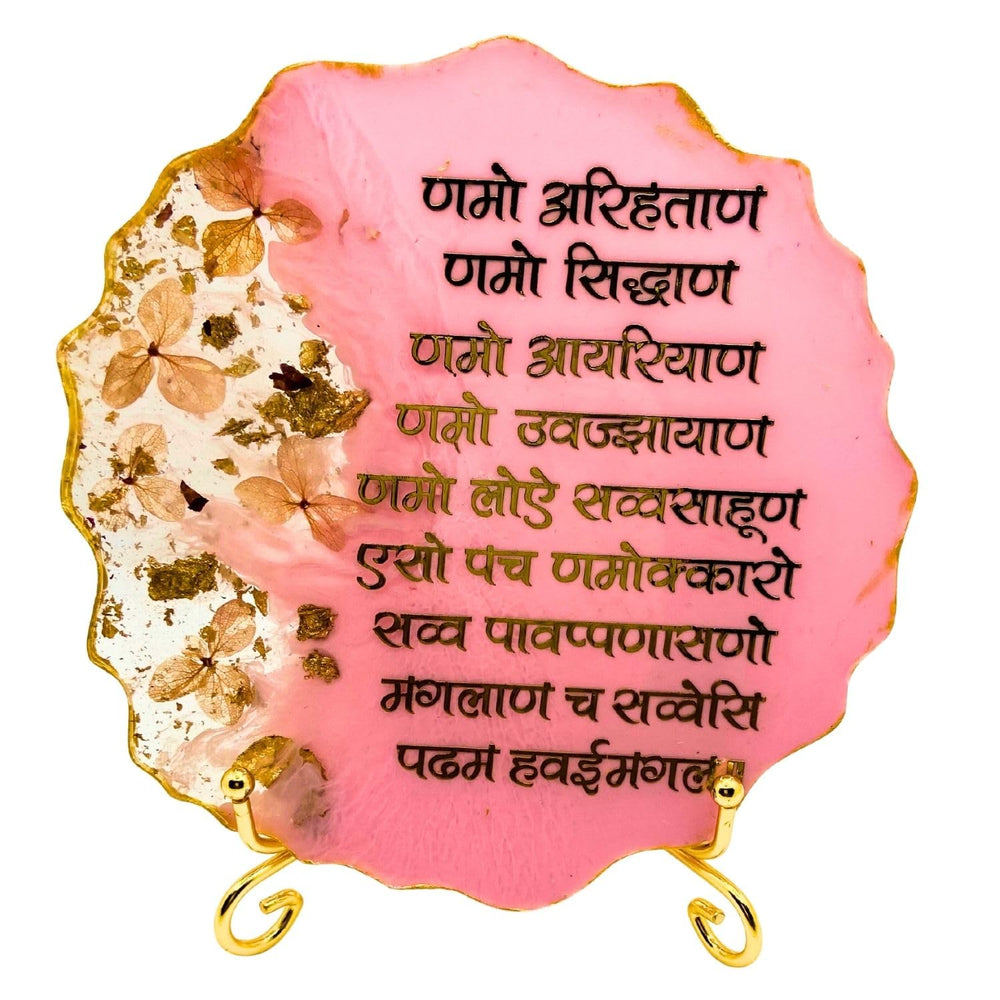 णमो अरिहताण
णमो सिद्धाण
णमो आयरियाण
णमो उवज्झायाण
णमो लोऐ सव्वसाहूण
एसो पच णमोक्कारो
सव्व पावप्पणासणो
मगलाण च सव्वेसि
पढम हवईमगल॥